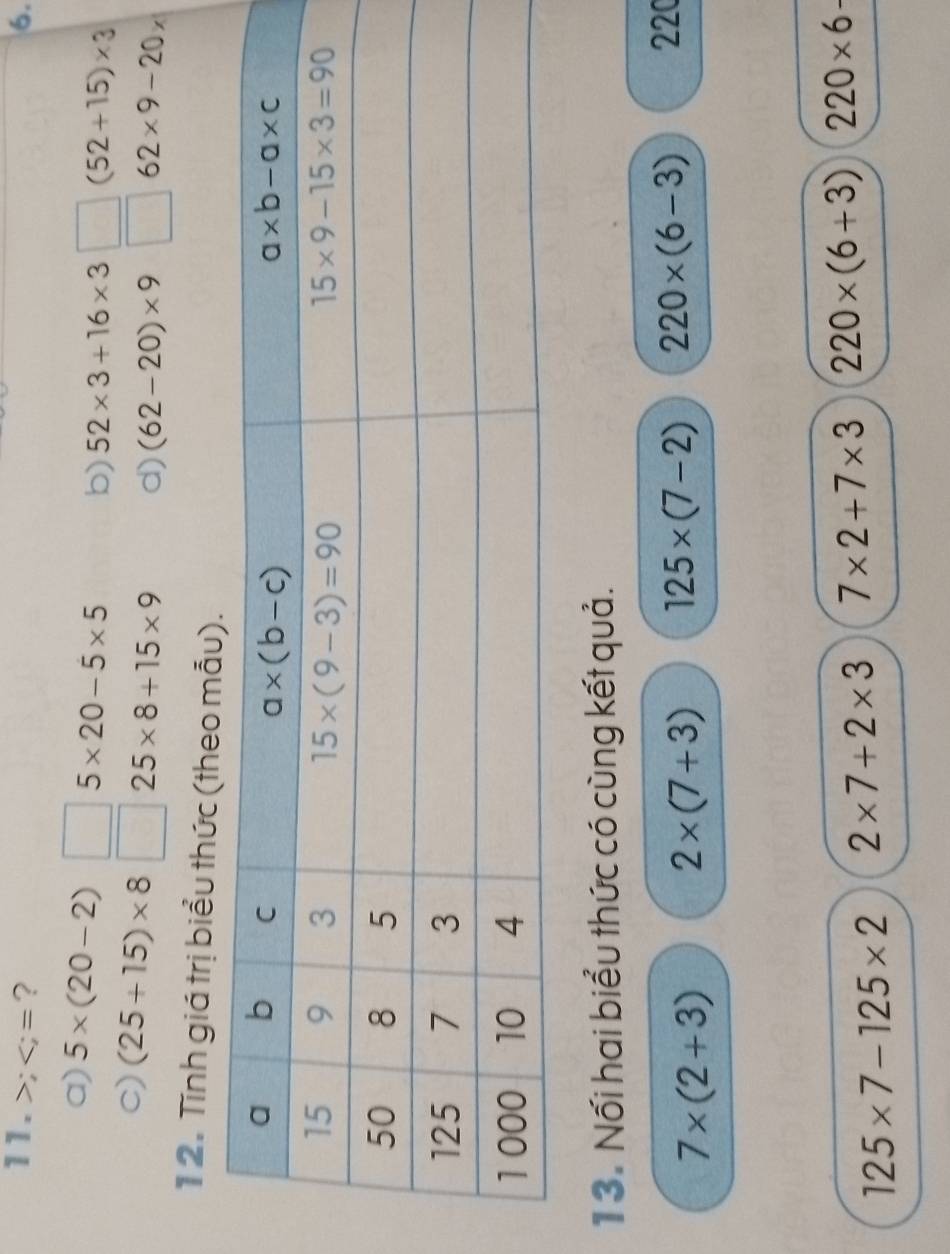 6.
11. >; <; = ?
a) 5 × (20 – 2) 5 × 20 – 5 × 5 b) 52 × 3 + 16 × 3 (52 + 15) × 3
c) (25 + 15) × 8 25 × 8 + 15 × 9 d) (62 – 20) × 9 62 × 9 – 20 ×
12. Tính giá trị biểu thức (theo mẫu).
a b c a × (b – c) a × b – a × c
15 9 3 15 × (9 – 3) = 90 15 × 9 – 15 × 3 = 90
50 8 5
125 7 3
1 000 10 4
13. Nối hai biểu thức có cùng kết quả.
7 × (2 + 3) 2 × (7 + 3) 125 × (7 – 2) 220 × (6 – 3) 220
125 × 7 – 125 × 2 2 × 7 + 2 × 3 7 × 2 + 7 × 3 220 × (6 + 3) 220 × 6 -